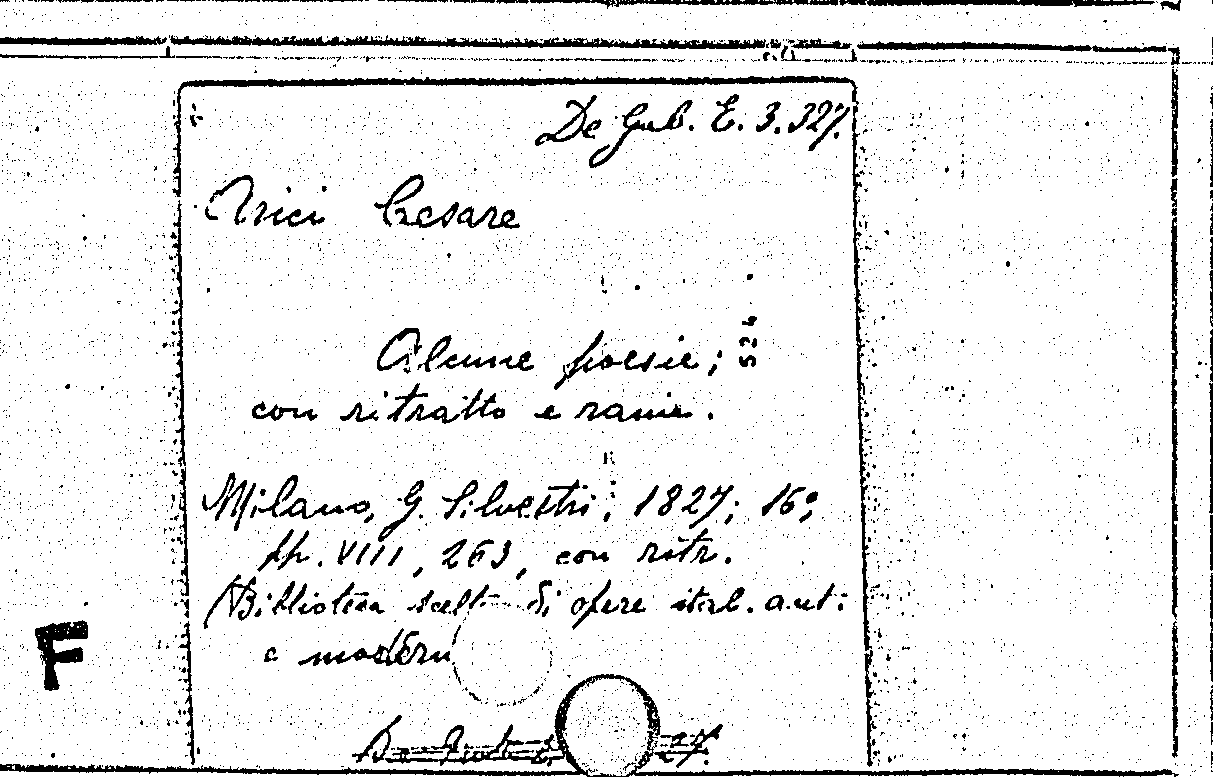 De Gub. E. 3.327.
Arici Cesare
Alcune poesie;
524
con ritratto e rami.
Milano, G. Silvestri; 1827; 16°;
pp. VIII, 263, con ritr.
(Biblioteca scelt di opere ital. ant.
e modern
F
De Gub E. 27.